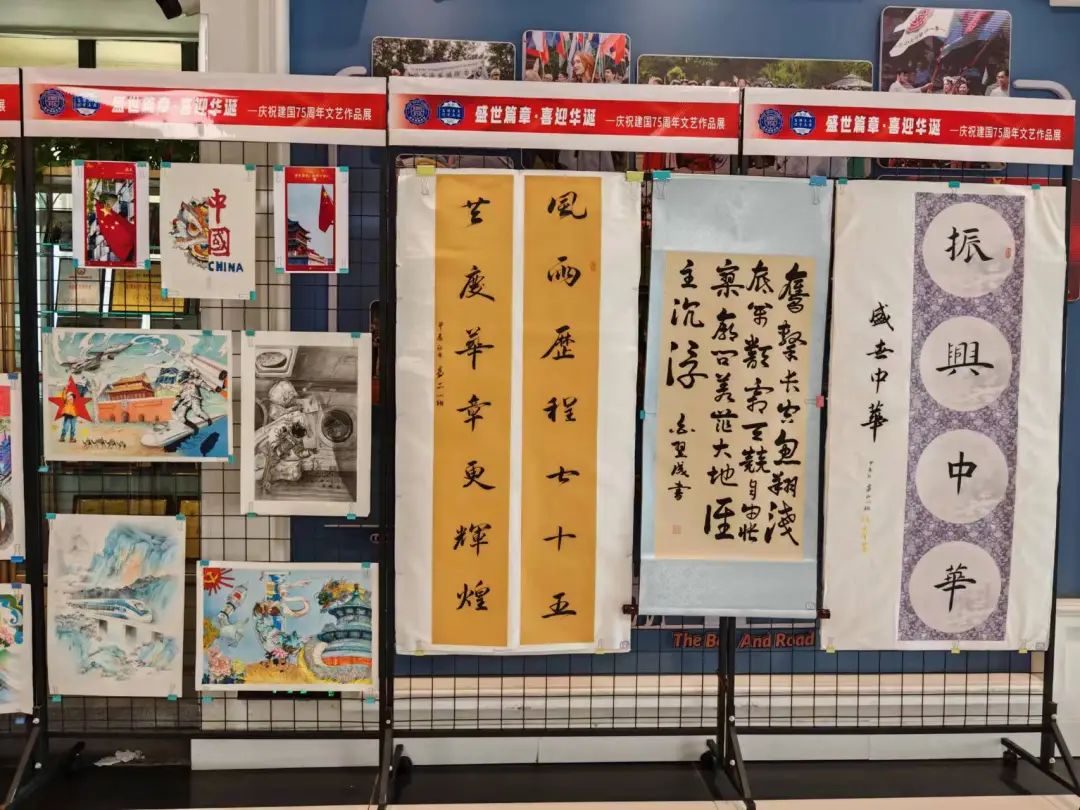 展
盛世篇章·喜迎华诞 —庆祝建国75周年文艺作品展
盛世篇章·喜迎华诞 —庆祝建国75周年文艺作品展
盛世篇章·喜迎华诞 —庆祝建国75周年文艺作品展
中國
CHINA
風雨歷程七十五
度華章更輝煌
鷹擊长空魚翔淺
底萬類霜天競自由悵
寥廓问蒼茫大地誰
主沉浮
振興中華
盛世中華
The Be And Road